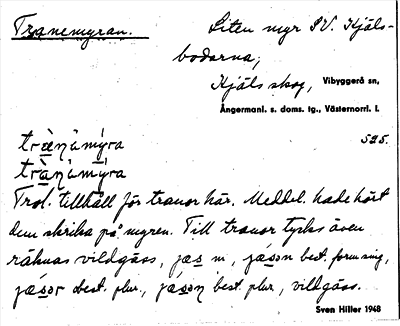 Tranemyran.
Liten myr SV. Kjäls-
bodarna,
Kjäls skog, Vibyggerå sn,
Ångermanl. s. doms. tg., Västernorrl. l.
525.
Trol. tillhåll för tranor här. Meddel. hade hört
dem skrika på myren. Till tranor tycks även
räknas vildgäss, jæs m, jǽson best. form sing,
jǽsor obest. plur., best. plur., vildgäss.
Sven Hiller 1948